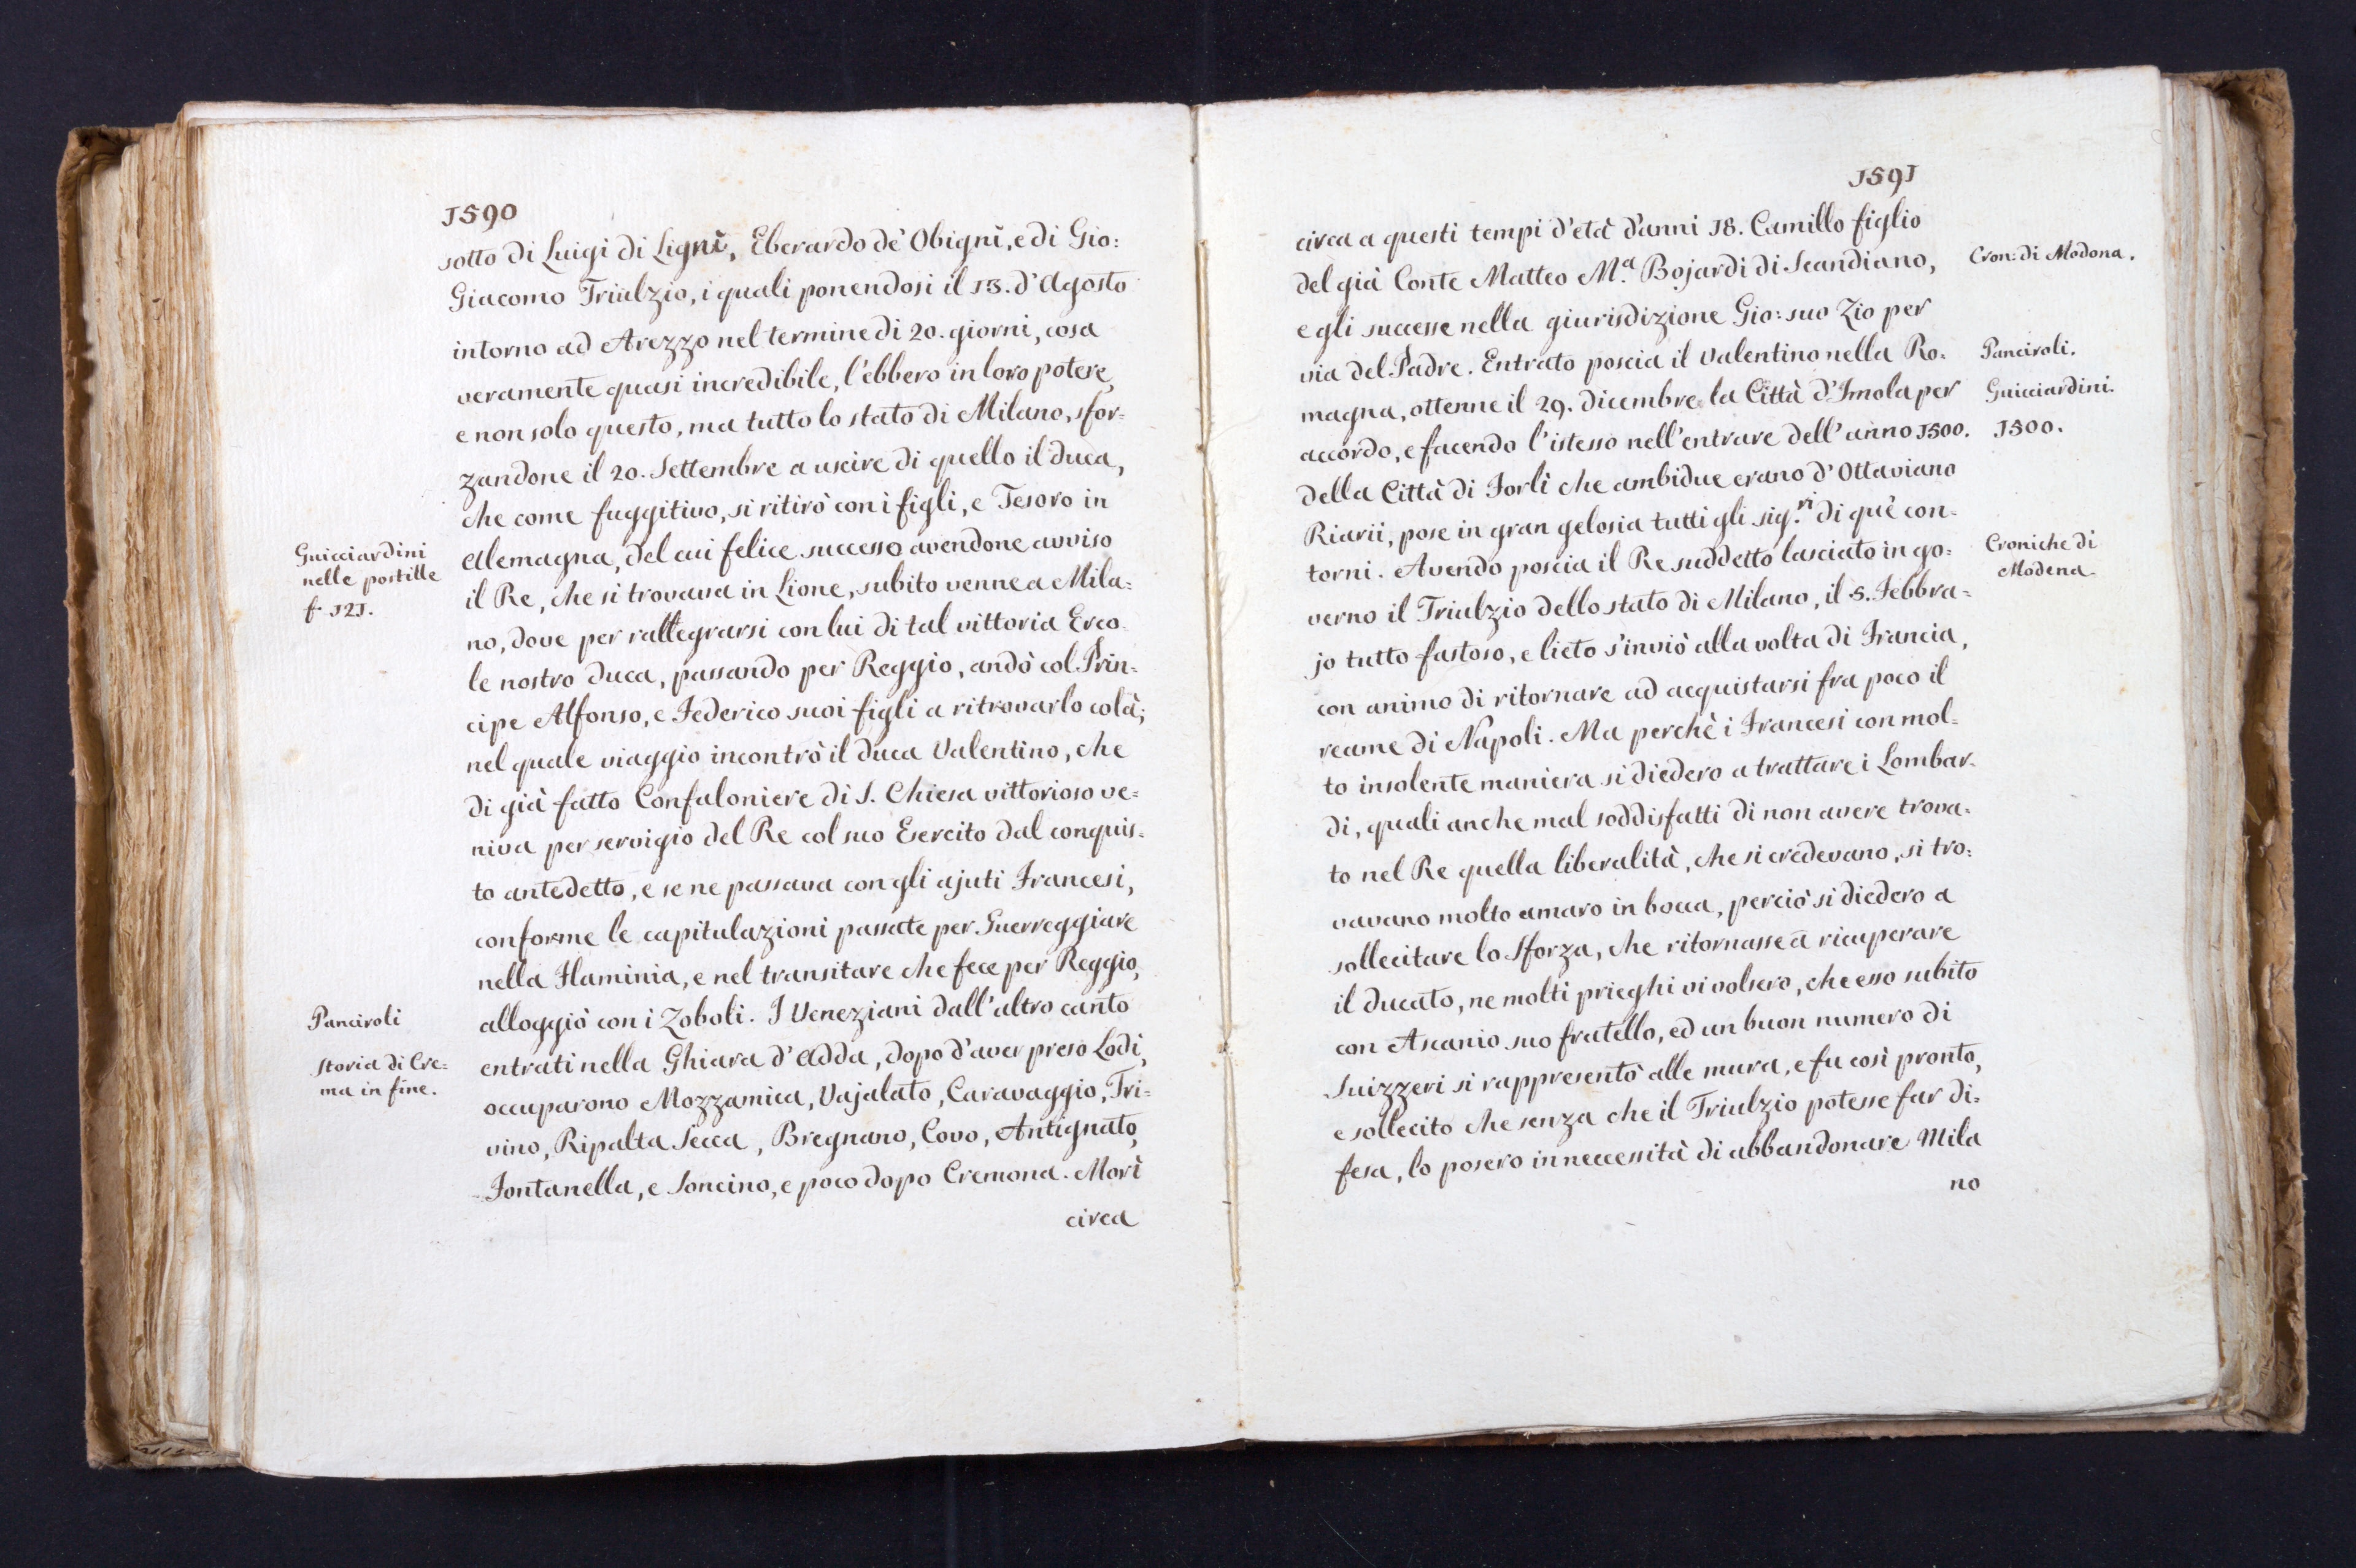 1590
sotto di Luigi di Lignì, Eberardo de' Obignì, e di Gio:
Giacomo Triulzio, i quali ponendosi il 13. d'Agosto
intorno ad Arezzo nel termine di 20. giorni, cosa
veramente quasi incredibile, l'ebbero in loro potere,
e non solo questo, ma tutto lo stato di Milano, sfor=
zandone il 20. Settembre a uscire di quello il Duca,
che come fuggitivo, si ritirò con i figli, e Tesoro in
Guicciardini
nelle postille
f. 121.
Alemagna, del cui felice successo avendone avviso
il Re, che si trovava in Lione, subito venne a Mila=
no, dove per rallegrarsi con lui di tal vittoria Erco=
le nostro Duca, passando per Reggio, andò col Prin=
cipe Alfonso, e Federico suoi figli a ritrovarlo colà;
nel quale viaggio incontrò il Duca Valentino, che
di già fatto Confaloniere di S. Chiesa vittorioso ve=
niva per servigio del Re col suo Esercito dal conquis=
to antedetto, e se ne passava con gli ajuti Francesi,
conforme le capitulazioni passate per Guerreggiare
nella Flaminia, e nel transitare che fece per Reggio,
Panciroli
alloggiò con i Zoboli. I Veneziani dall'altro canto
Storia di Cre=
ma in fine.
entrati nella Ghiara d'Adda, dopo d'aver preso Lodi,
occuparono Mozzamica, Vajalato, Caravaggio, Tri=
vino, Ripalta Secca, Bregnano, Covo, Antignato,
Fontanella, e Soncino, e poco dopo Cremona. Morì
circa
1591
circa a questi tempi d'età d'anni 18. Camillo figlio
del già Conte Matteo M.a Bojardi di Scandiano,
Cron: di Modona.
e gli successe nella giurisdizione Gio: suo Zio per
via del Padre. Entrato poscia il Valentino nella Ro=
Panciroli.
magna, ottenne il 29. Dicembre la Città d'Imola per
Guicciardini.
accordo, e facendo l'istesso nell'entrare dell'anno 1500.
1500.
della Città di Forlì che ambidue erano d'Ottaviano
Riarii, pose in gran gelosia tutti gli sig.ri di que' con=
torni. Avendo poscia il Re suddetto lasciato in go=
Croniche di
Modena.
verno il Triulzio dello stato di Milano, il 5. Febbra=
jo tutto fastoso, e lieto s'inviò alla volta di Francia,
con animo di ritornare ad acquistarsi fra poco il
reame di Napoli. Ma perchè i Francesi con mol=
to insolente maniera si diedero a trattare i Lombar=
di, quali anche mal soddisfatti di non avere trova=
to nel Re quella liberalità, che si credevano, si tro=
vavano molto amaro in bocca, perciò si diedero a
sollecitare lo Sforza, che ritornasse à ricuperare
il ducato, ne molti prieghi vi volsero, che esso subito
con Ascanio suo fratello, ed un buon numero di
Suizzeri si rappresentò alle mura, e fu così pronto,
e sollecito che senza che il Triulzio potesse far di=
fesa, lo posero in neccessità di abbandonare Mila
no